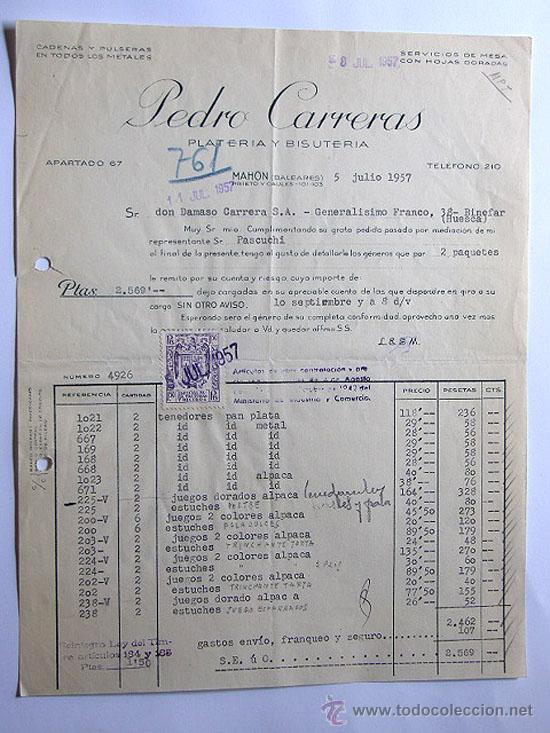 CADENAS Y PULSERAS
EN TODOS LOS METALES
SERVICIOS DE MESA
CON HOJAS DORADAS
8 JUL. 1957
Pedro Carreras
PLATERIA Y BISUTERIA
APARTADO 67
TELEFONO 210
761
11 JUL. 1957
MAHON (BALEARES) 5 julio 1957
PRIETO Y CAULES-101-103
Sr. don Damaso Carrera S.A. - Generalisimo Franco, 38- Binefar
(Huesca)
Muy Sr. mio: Cumplimentando su grato pedido pasado por mediación de mi
representante Sr. Pascuchi
al final de la presente, tengo el gusto de detallarle los géneros que por 2 paquetes
le remito por su cuenta y riesgo, cuyo importe de
Ptas. 2.569'-- dejo cargadas en su apreciable cuenta de las que dispondré en giro a su
cargo SIN OTRO AVISO. lo septiembre y a 8 d/v
Esperando sera el género de su completa conformidad, aprovecho una vez mas
saludar a Vd. y quedar affmo. S.S.
JUL 1957
NUMERO 4926
Ministerio de Industria y Comercio.
REFERENCIA CANTIDAD PRECIO PESETAS CTS.
1o21 2 tenedores pan plata 118'-- 236 --
1o22 2 id id metal 29'-- 58 --
667 2 id id id 28'-- 56 --
169 2 id id id 29'-- 58 --
168 2 id id id 29'-- 58 --
668 2 id id id 29'-- 58 --
1o23 2 id id alpaca 4o'-- 8o --
671 2 id id id 38'-- 76 --
225-V 2 juegos dorados alpaca 164'-- 328 --
225 2 estuches POSTRE 4o'-- 8o --
2oo-V 6 juegos 2 colores alpaca 45'50 273 --
2oo 6 estuches PALA DULCES 2o'-- 12o --
2o3-V 2 juegos 2 colores alpaca 89'50 179 --
2o3 2 estuches TRINCHANTE TARTA 24'-- 48 --
224-V 2 juegos 2 colores alpaca 135'-- 27o --
224 2 estuches " " 3o'-- 6o --
2o2-V 2 juegos 2 colores alpaca 89'50 179 --
2o2 2 estuches TRINCHANTE TARTA 24'-- 48 --
238-V 2 juegos dorado alpaca 77'50 155 --
238 2 estuches JUEGO ESPARRAGOS 26'-- 52 --
2.462 --
gastos envío, franqueo y seguro 107 --
S.E. ú O. 2.569 --
Reintegro Ley del Tim-
bre artículos 184 y 185
Ptas. 1'50
www.todocoleccion.net